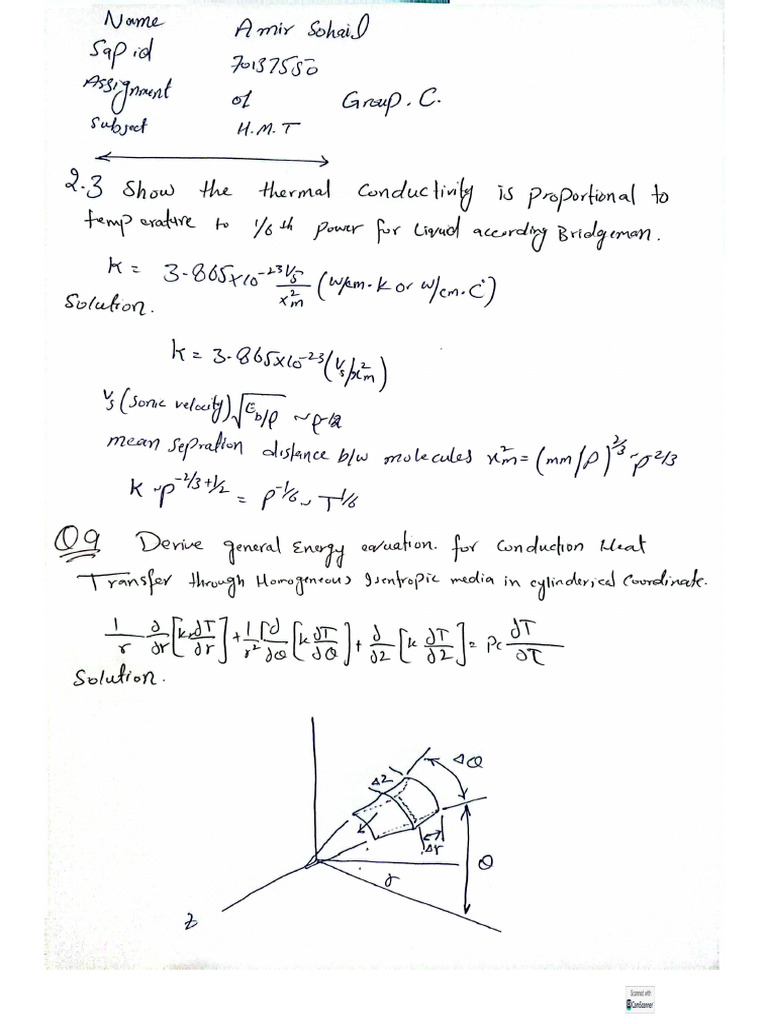 Name Amir Sohail
Sap id 70137550
Assignment of Group. C.
Subject H.M.T
2.3 Show the thermal conductivity is proportional to
temperature to 1/6 th power for Liquid according Bridgeman.
k = 3.865×10^-23 Vs/x²m (W/cm.k or W/cm.C)
Solution.
k = 3.865×10^-23 (Vs/x²m)
Vs (Sonic velocity) √Eb/ρ ~
mean sepration distance b/w molecules x²m = (mm/ρ)^2/3 ~ρ^2/3
k ~ρ^-2/3+1/2 = ρ^-1/6 ~ T^1/6
Q9 Derive general Energy equation. for Conduction Heat
Transfer through Homogeneous Isentropic media in cylinderical Coordinate.
1/r ∂/∂r [kr∂T/∂r] + 1/r² [∂/∂θ [k ∂T/∂θ] + ∂/∂z [k ∂T/∂z] = ρc ∂T/∂τ
Solution.
Δθ
Δz
Δr
θ
r
z
Scanned with
CamScanner